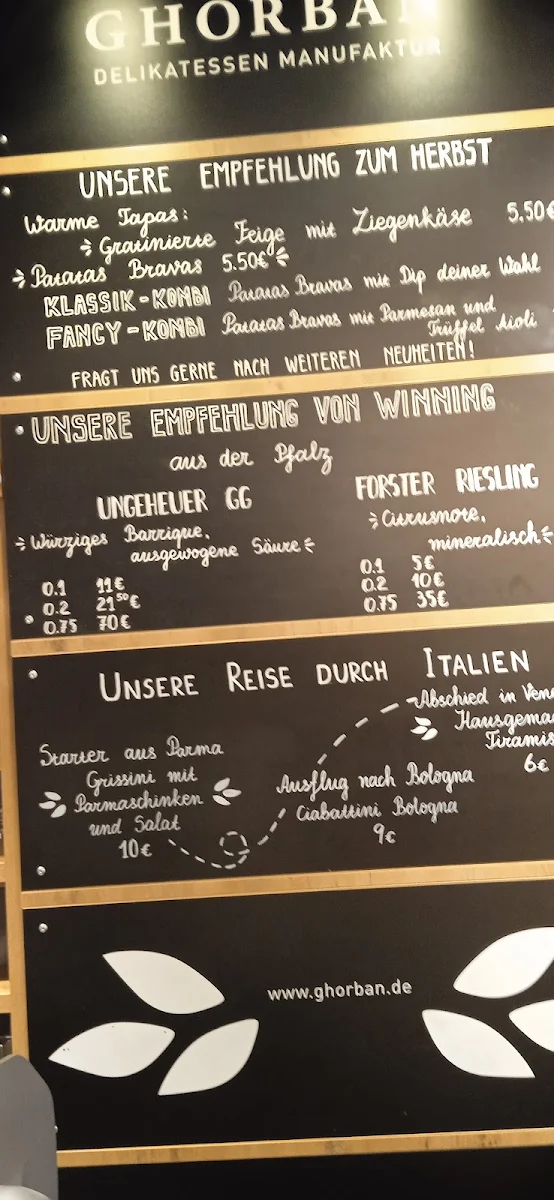 GHORBAN
DELIKATESSEN MANUFAKTUR
UNSERE EMPFEHLUNG ZUM HERBST
Warme Tapas:
Gratinierte Feige mit Ziegenkäse 5.50€
Patatas Bravas 5.50€
KLASSIK-KOMBI Patatas Bravas mit Dip deiner Wahl
FANCY-KOMBI Patatas Bravas mit Parmesan und
Trüffel Aioli
FRAGT UNS GERNE NACH WEITEREN NEUHEITEN!
UNSERE EMPFEHLUNG VON WINNING
aus der Pfalz
UNGEHEUER GG
Würziges Barrique,
ausgewogene Säure
0.1 11€
0.2 21⁵⁰€
0.75 70€
FORSTER RIESLING
Citrusnote,
mineralisch
0.1 5€
0.2 10€
0.75 35€
UNSERE REISE DURCH ITALIEN
Starter aus Parma
Grissini mit
Parmaschinken
und Salat
10€
Ausflug nach Bologna
Ciabattini Bologna
9€
Abschied in Vene
Hausgema
Tiramis
6€
www.ghorban.de